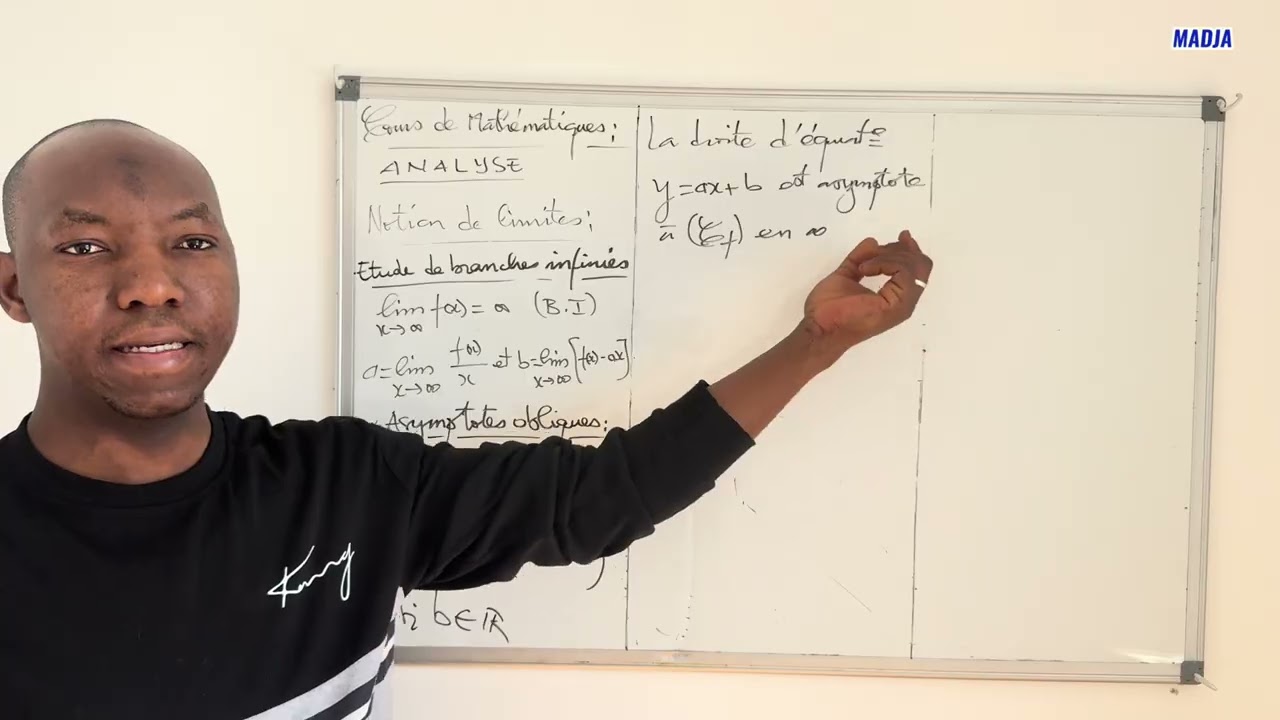 MADJA
Cours de Mathématiques:
ANALYSE
Notion de limites:
Etude de branches infinies
lim f(x) = ∞ (B.I)
x→∞
a=lim f(x)/x et b=lim [f(x)-ax]
x→∞ x→∞
Asymptotes obliques:
b∈ℝ
La droite d'équat°
y=ax+b est asymptote
à (𝒞f) en ∞